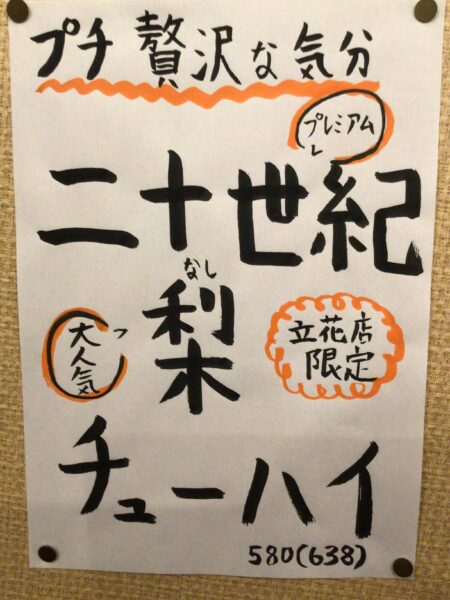 プチ贅沢な気分
プレミアム
二十世紀
なし
梨
大人気
立花店
限定
チューハイ
580(638)